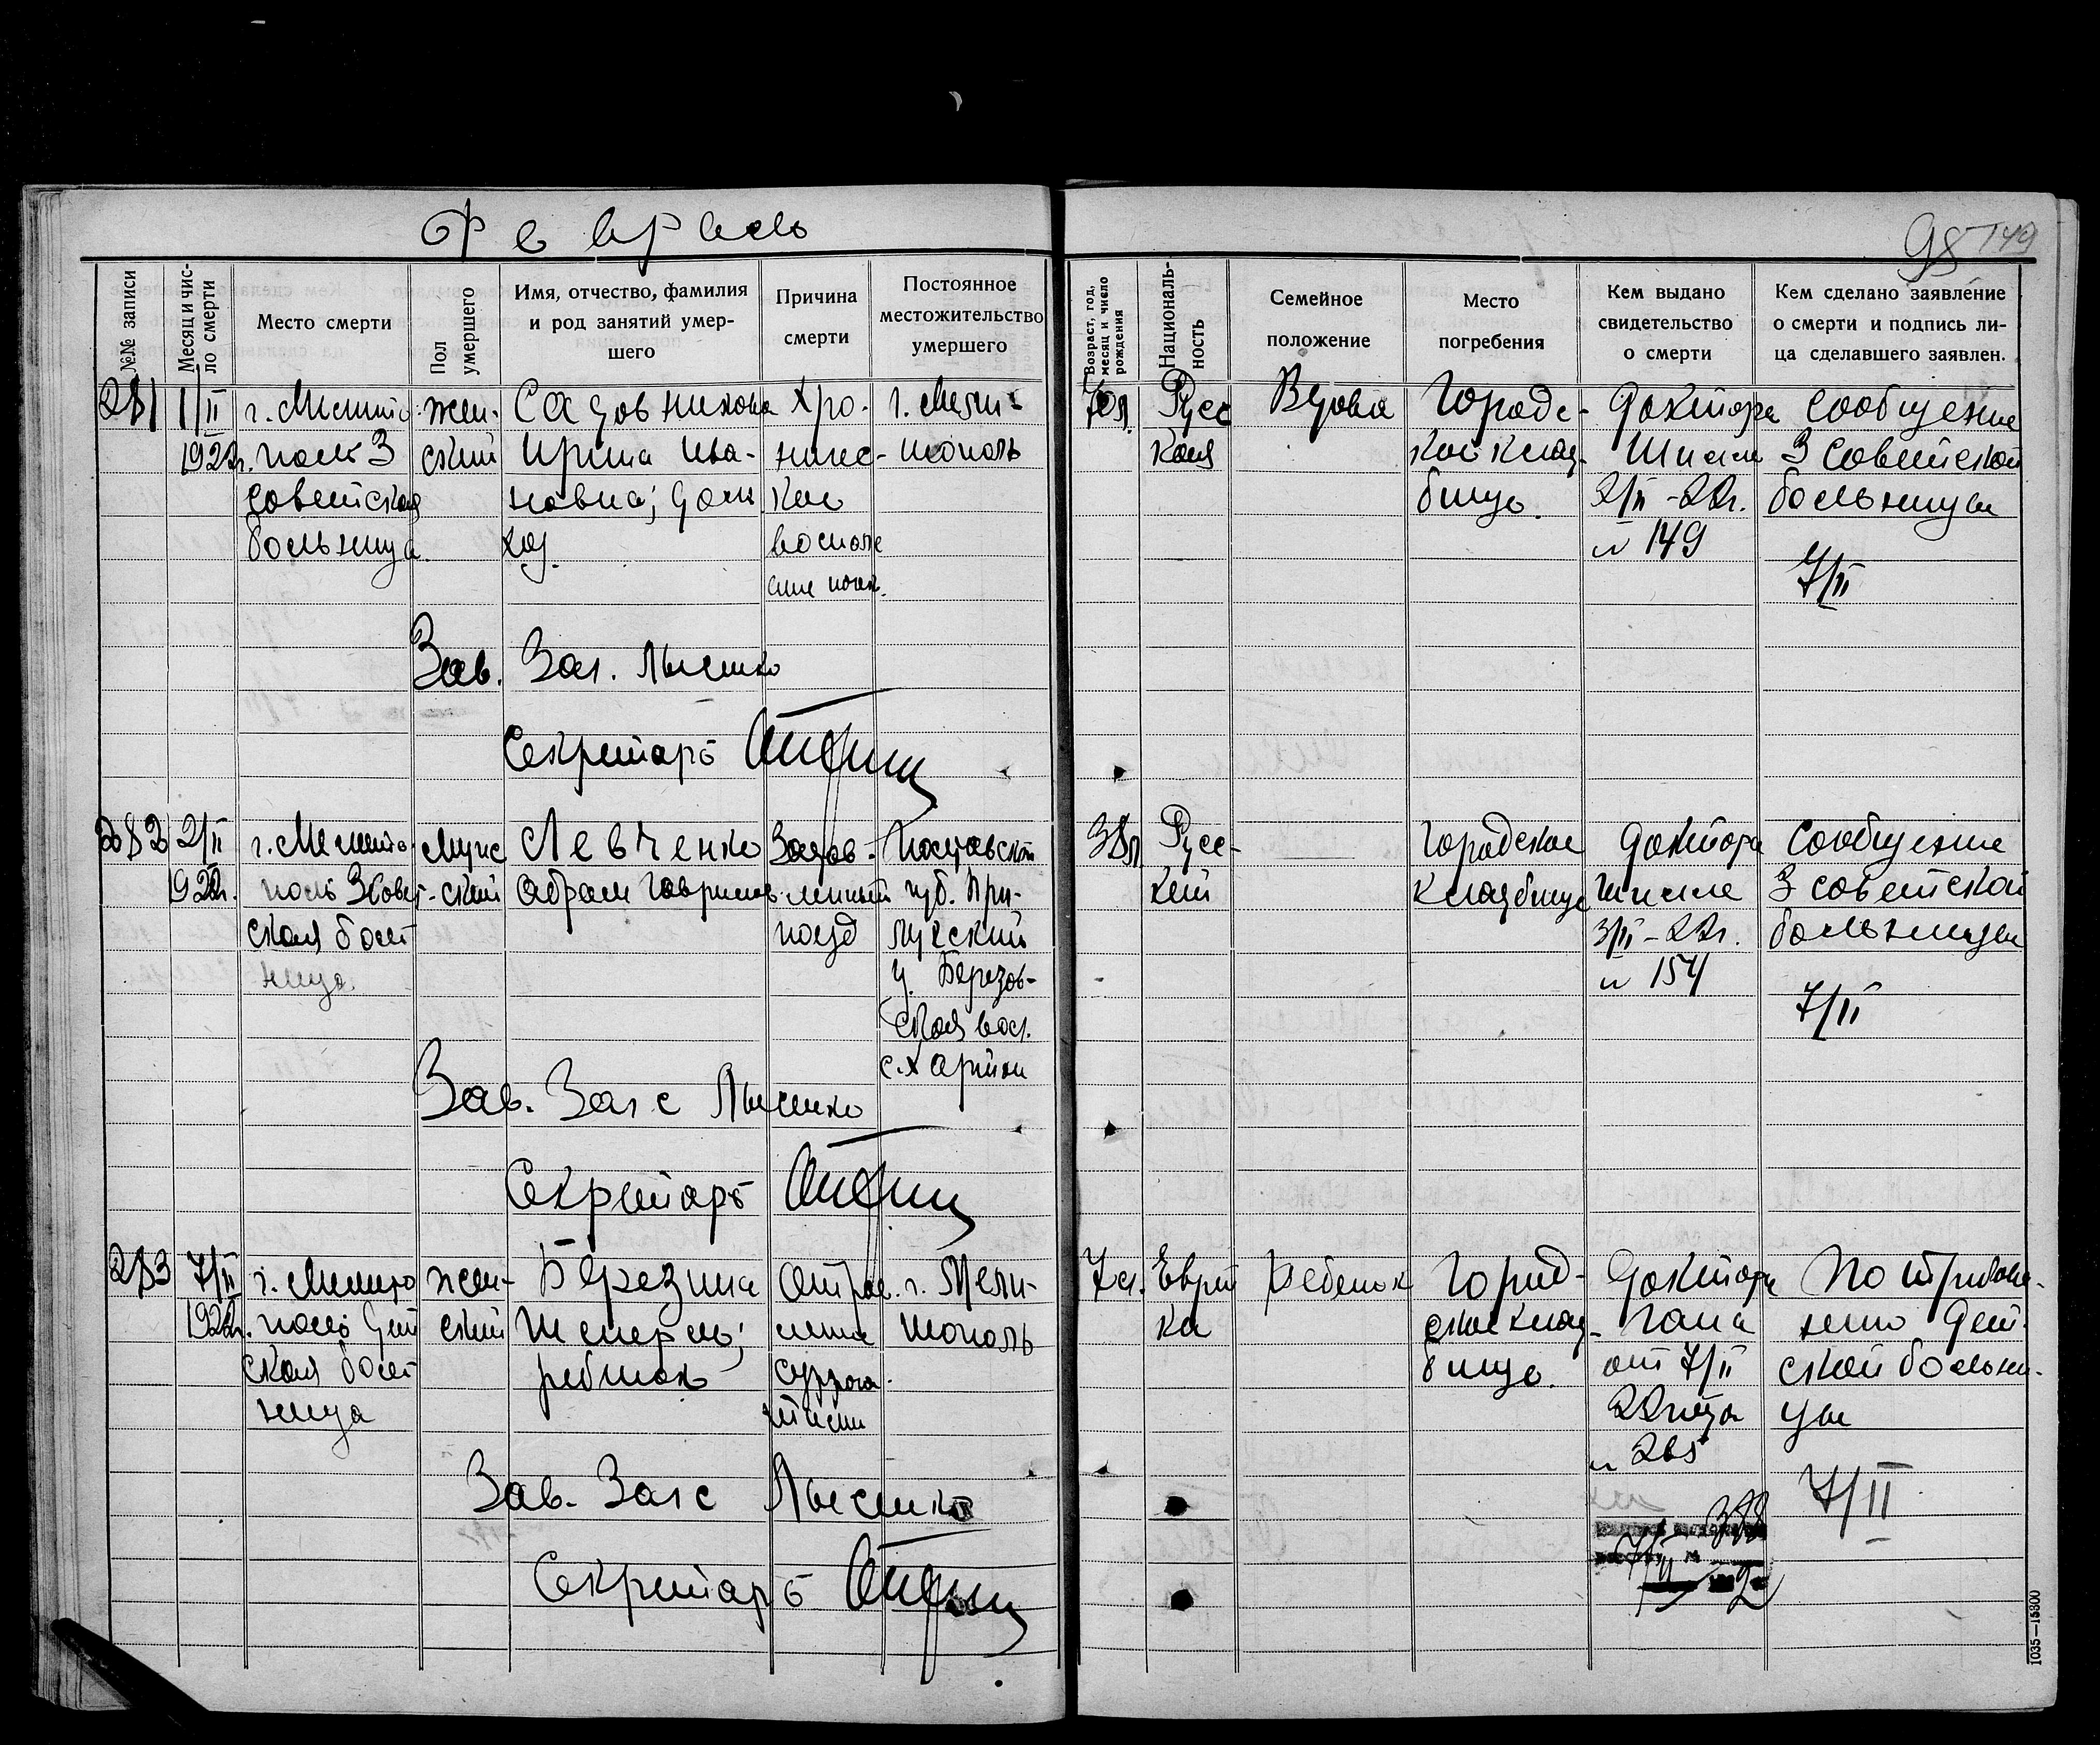 Февраль
98 149
№№ записи
Месяц и чис-
ло смерти
Место смерти
Пол
умершего
Имя, отчество, фамилия
и род занятий умер-
шего
Причина
смерти
Постоянное
местожительство
умершего
Возраст, год,
месяц и число
рождения
Националь-
ность
Семейное
положение
Место
погребения
Кем выдано
свидетельство
о смерти
Кем сделано заявление
о смерти и подпись ли-
ца сделавшего заявлен.
281
1/II
1922г.
г. Мелито-
поль 3
советская
больница
жен-
ский
Садовникова
Ирина Ива-
новна; дом
хоз.
Хро-
ничес-
кое
воспале
ние почек.
г. Мели-
тополь
70л.
Русс
кая
Вдова
Городс-
кое клад-
бище.
Доктора
2/II-22г.
№ 149
Сообщение
3 Советской
больницы
7/II
Зав. Заг. Лысенко
Секретарь
282
2/II
1922г.
г. Мелито-
поль 3 Совет-
ская боль
ница.
Мужс
-ский
Левченко
Абрам Гаврилов
Задав-
ленный
поезд
Полтавской
губ. При-
лукский
у. Березов-
ская вол.
38л.
Русс-
кий
Городское
кладбище
Доктора
3/II-22г.
№ 154
Сообщение
3 советской
больницы
7/II
Зав. Загс Лысенко
Секретарь
283
7/II
1922г.
г. Мелито
поль Дет
ская боль
ница
жен-
ский
Березина
ребенок
Отрав-
ление
суррога-
тами
г. Мели-
тополь
7л.
Еврей
ка
Ребенок
Город-
ское клад-
бище.
Доктора
от 7/II
22 года
№ 265
По требова-
нию Дет-
ской больни-
цы
7/II
Зав. Загс Лысенко
Секретарь
1035—15800